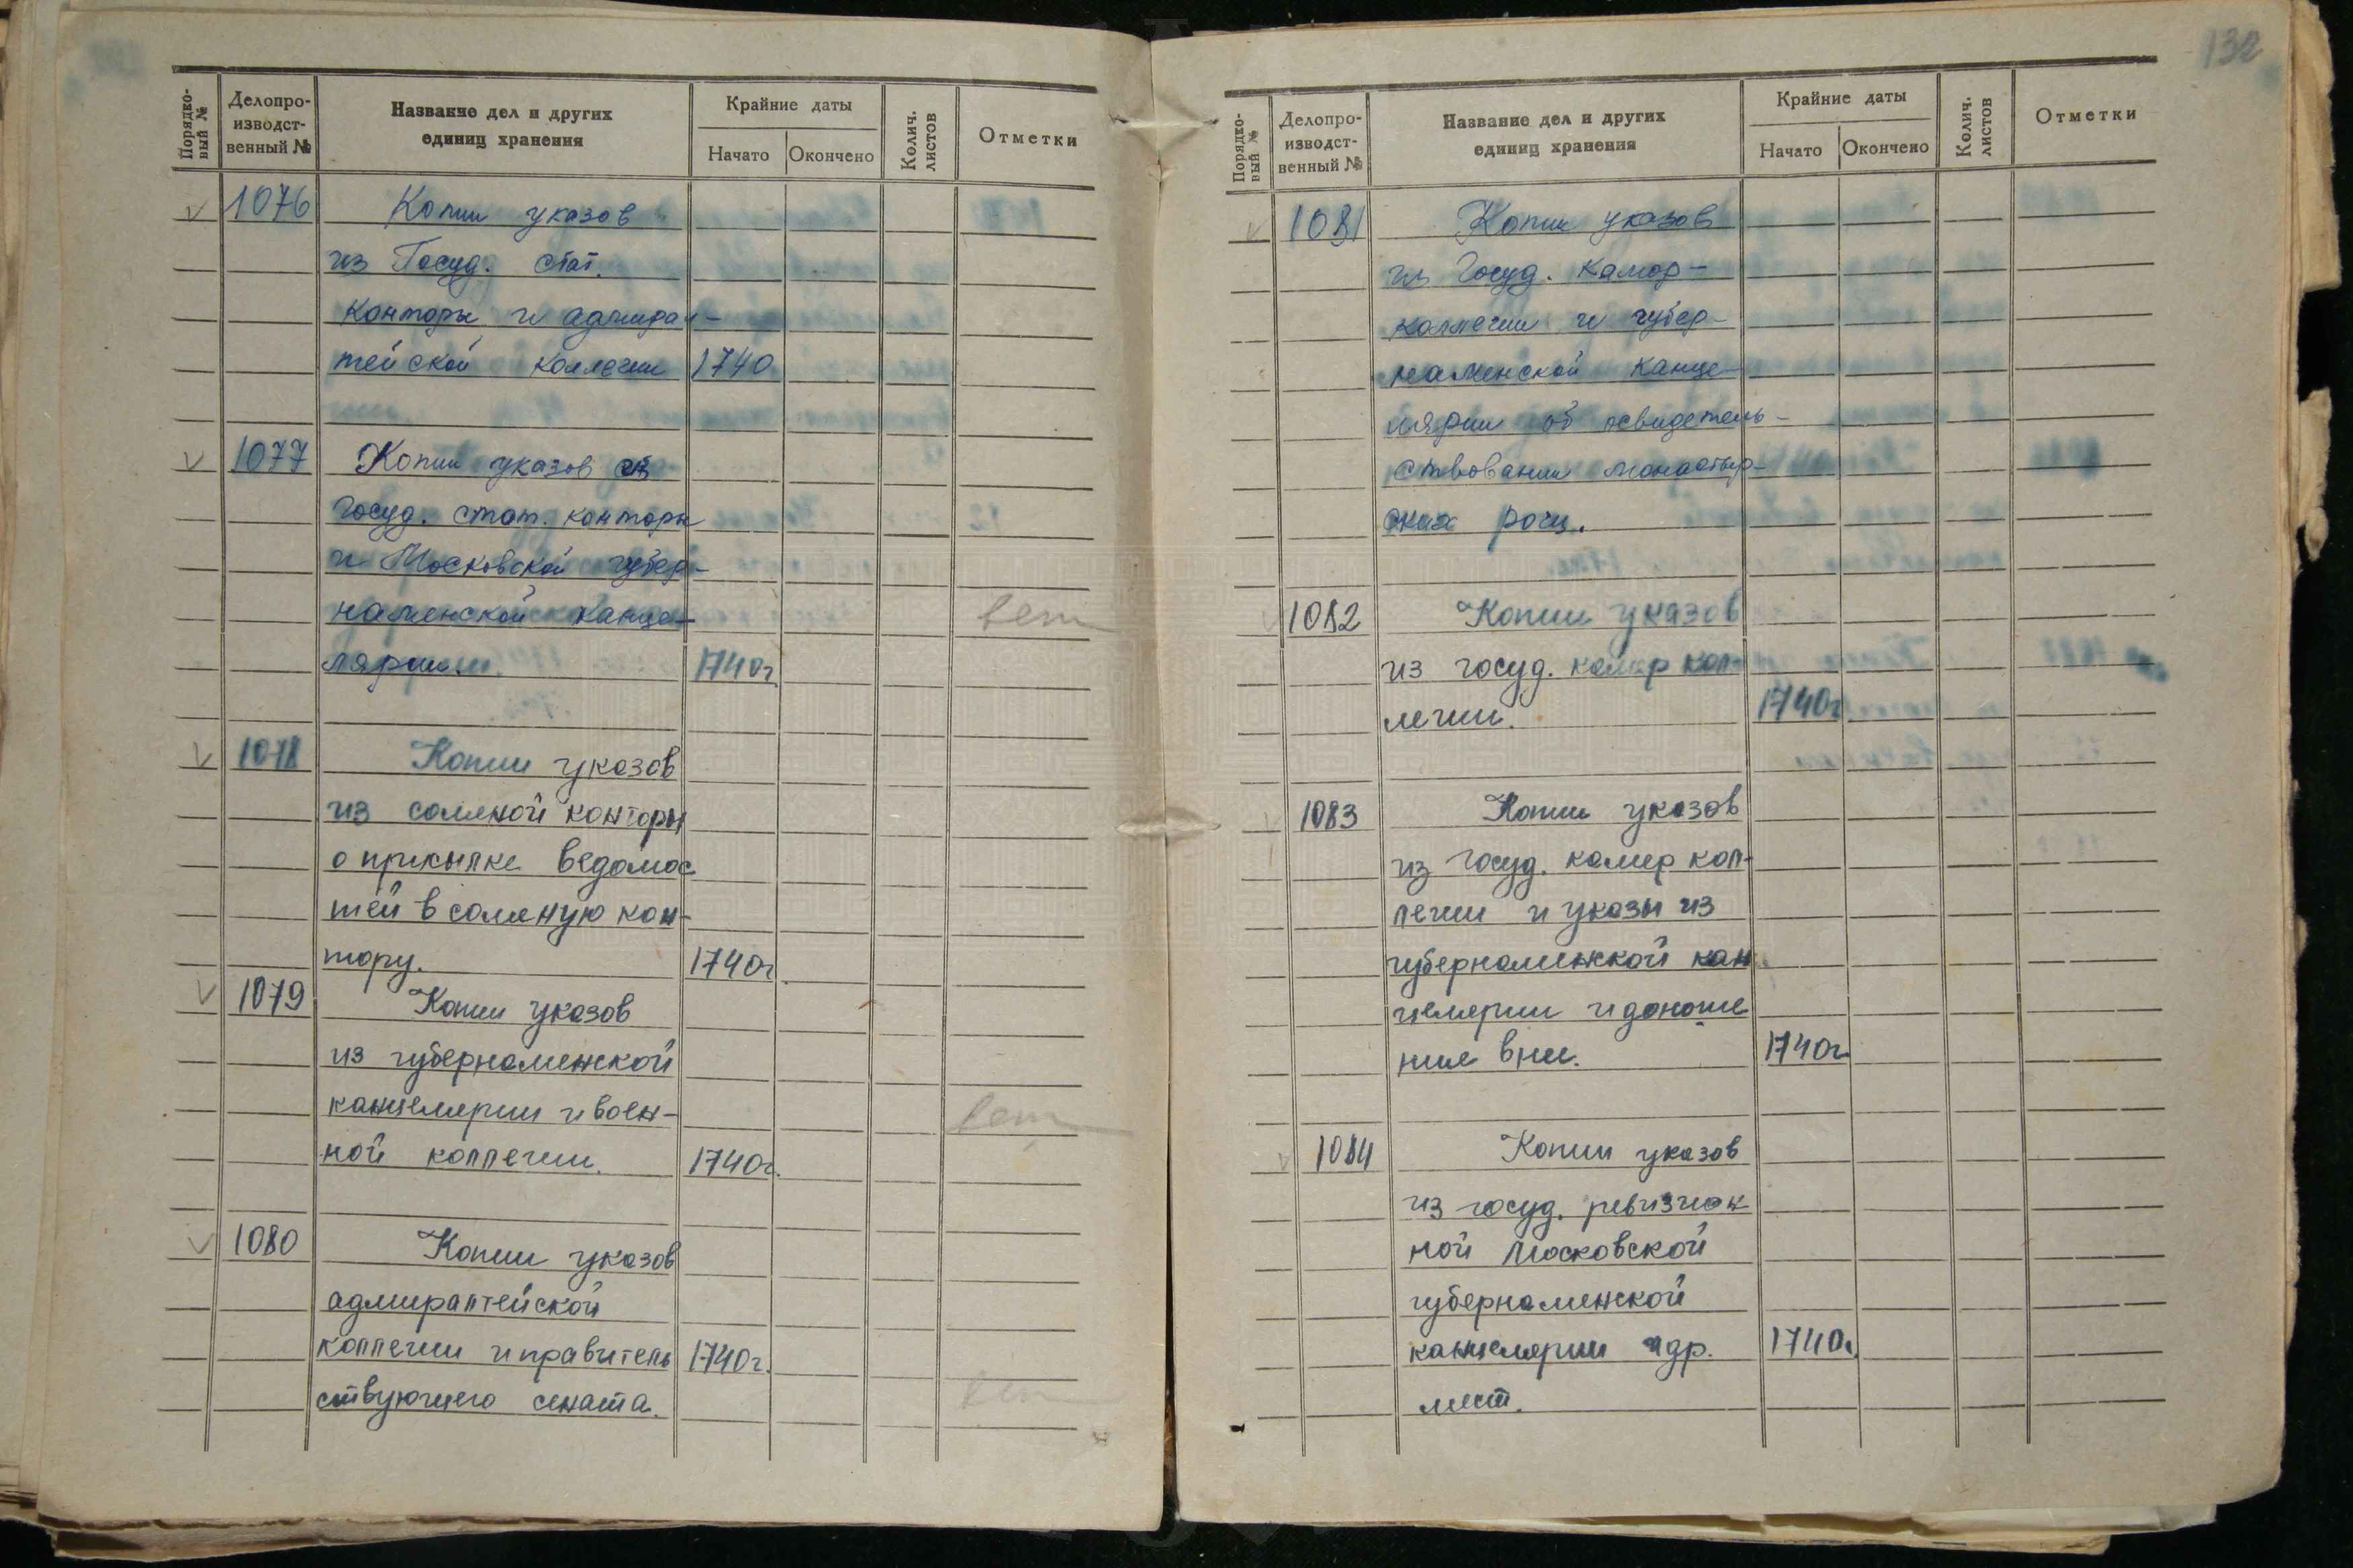 132
Порядко-
вый №
Делопро-
изводст-
венный №
Название дел и других
единиц хранения
Крайние даты
Начато
Окончено
Колич.
листов
Отметки
V 1076 Копии указов
из Госуд. стат.
конторы и адмирал-
тейской коллегии 1740
V 1077 Копии указов из
Госуд. стат. конторы
и Московской губер-
наменской канце-
лярии. 1740г
V 1078 Копии указов
из соляной конторы
о присылке ведомос
тей в соляную кон-
тору. 1740г
V 1079 Копии указов
из губернаменской
канцелярии и воен-
ной коллегии. 1740г.
V 1080 Копии указов
адмиралтейской
коллегии и правитель 1740г.
ствующего сената.
Порядко-
вый №
Делопро-
изводст-
венный №
Название дел и других
единиц хранения
Крайние даты
Начато
Окончено
Колич.
листов
Отметки
V 1081 Копии указов
из Госуд. камор-
коллегии и губер-
наменской канце-
лярии об освидетель-
ствовании монастыр-
ских рощ.
V 1082 Копии указов
из госуд. камер кол-
легии. 1740г
V 1083 Копии указов
из госуд. камер кол-
легии и указы из
губернаменской кан
целярии и доноше
ние вни. 1740г
V 1084 Копии указов
из госуд. ревизион
ной Московской
губернаменской
канцелярии и др. 1740г.
мест.